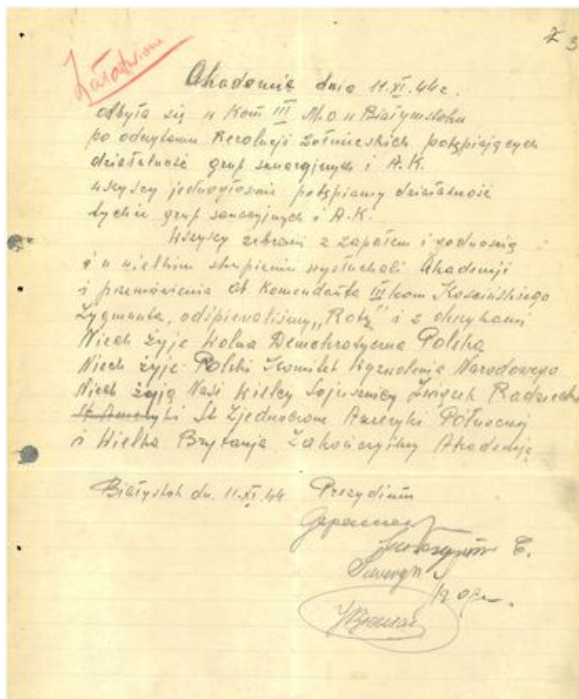 3
Załatwione
Akademia dnia 11.XI.44r.
odbyła się w Kom III M.O w Białymstoku
po odczytaniu Rezolucji żołnierskich potępiających
działalność grup sanacyjnych i A.K.
wszyscy jednogłośnie potępiamy działalność
tychże grup sanacyjnych i A.K.
Wszyscy zebrani z zapałem i godnością
i w wielkim skupieniu wysłuchali Akademji
i przemówienia Ob. Komendanta III kom Kosińskiego
Zygmunta, odśpiewaliśmy „Rotę" i z okrzykami
Niech żyje Wolna Demokratyczna Polska
Niech żyje Polski Komitet Wyzwolenia Narodowego
Niech żyją Nasi Wielcy Sojusznicy Związek Radziecki
St Ameryki St Zjednoczone Ameryki Północnej
i Wielka Brytanja Zakończyliśmy Akademię
Białystok dn. 11.XI.44 Prezydium